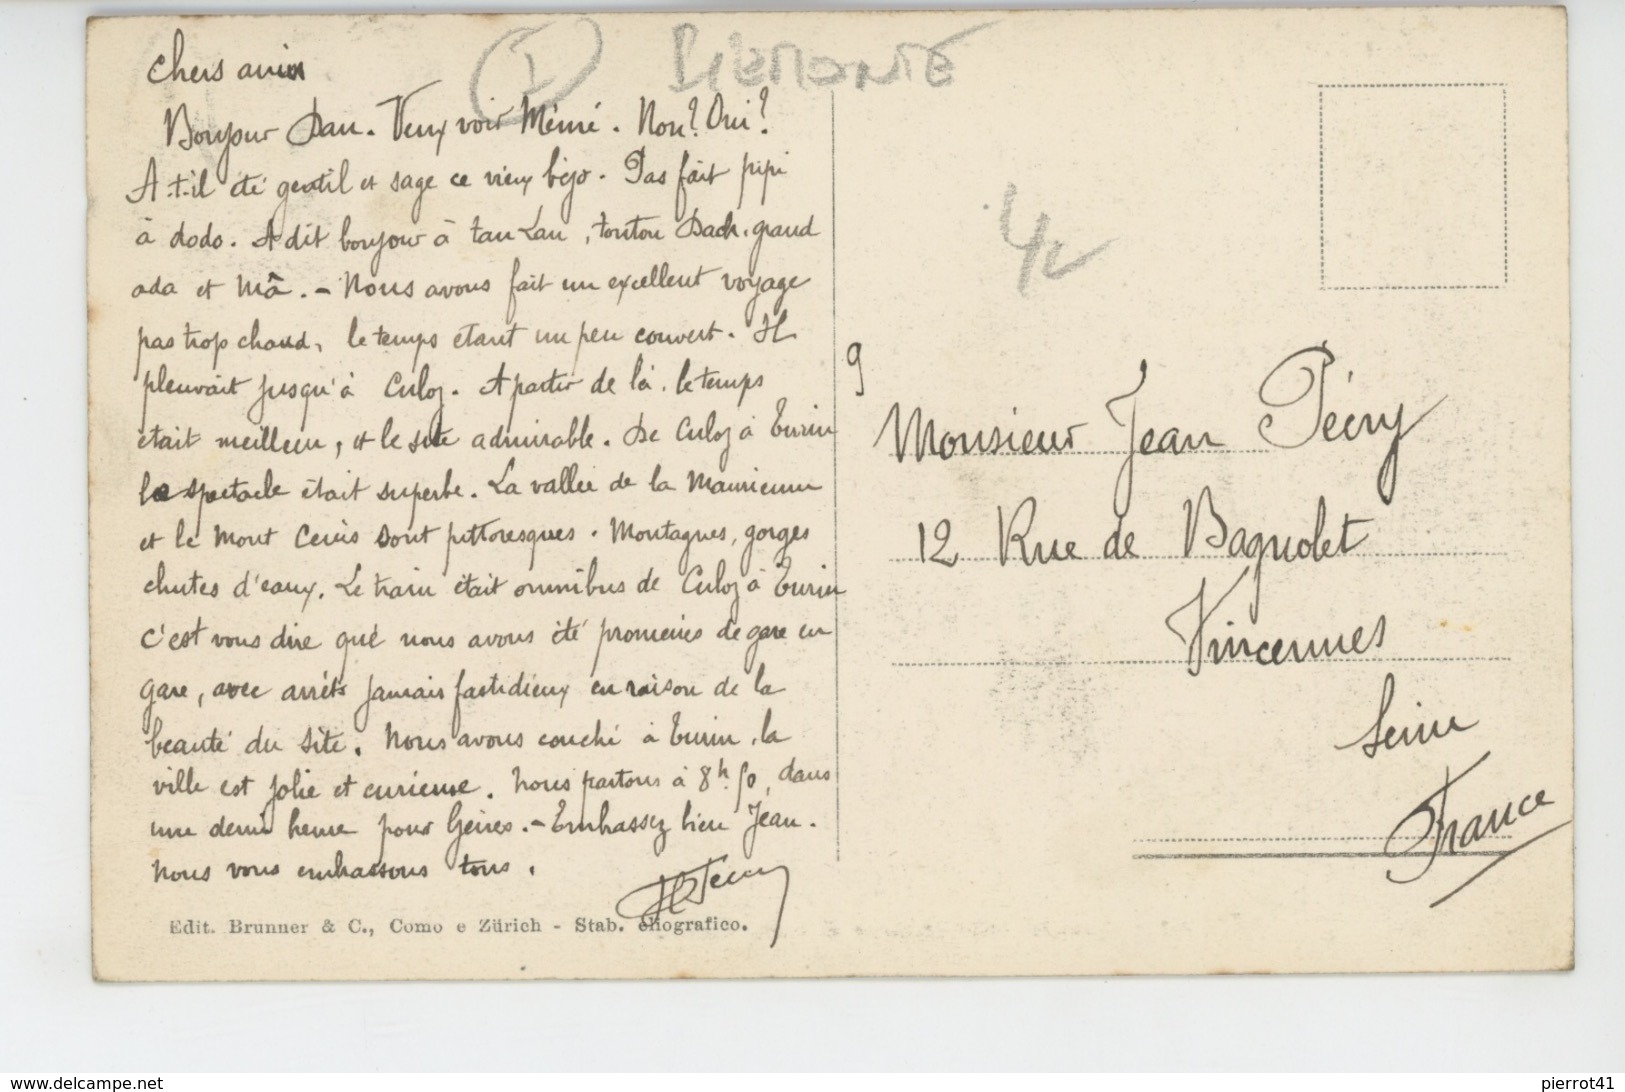 I PIEMONTE
Chers amis
Bonjour Dan. Veux voir Mémé. Non? Oui?
A-t-il été gentil et sage ce vieux bijo. Pas fait pipi
à dodo. A dit bonjour à tan Lau, tonton Dach, grand
ada et Mâ. - Nous avons fait un excellent voyage
pas trop chaud, le temps étant un peu couvert. Il
pleuvait jusqu'à Culoz. A partir de là, le temps
était meilleur, et le site admirable. De Culoz à Turin
le spectacle était superbe. La vallée de la Maurienne
et le Mont Cenis sont pittoresques. Montagnes, gorges
chutes d'eaux. Le train était omnibus de Culoz à Turin
c'est vous dire que nous avons été promenés de gare en
gare, avec arrêts jamais fastidieux en raison de la
beauté du site. Nous avons couché à Turin, la
ville est jolie et curieuse. Nous partons à 8h.50, dans
une demi heure pour Gênes. - Embrassez bien Jean.
Nous vous embrassons tous.
Edit. Brunner & C., Como e Zürich - Stab. eliografico.
9
Monsieur Jean Pécry
12 Rue de Bagnolet
Vincennes
Seine
France
delcampe.net
pierrot41